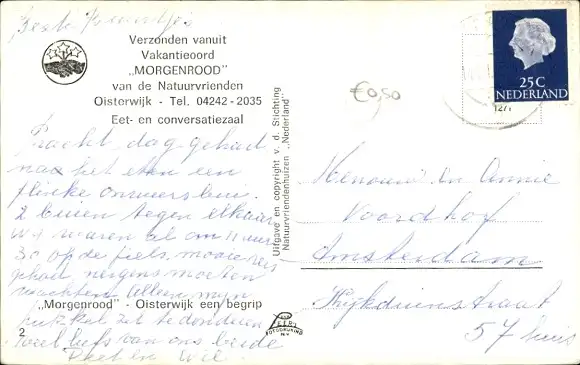 Beste
Verzonden vanuit
Vakantieoord
„MORGENROOD"
van de Natuurvrienden
Oisterwijk - Tel. 04242 - 2035
Eet- en conversatiezaal
Pracht dag gehad
na het eten een
flinke onweersbui
2 buien tegen elkaar
Wij waren al om 11 uur
30 op de fiets, mooie
gehad nergens moeten
mijn
„Morgenrood" - Oisterwijk een begrip
te donderen
Veel liefs van ons beide
Piet en Wil
2
Uitgave en copyright v. d. Stichting
Natuurvriendenhuizen „Nederland"
€0,50
25C
NEDERLAND
en Annie
Voordhof
Amsterdam
Rijkduinstraat
57 huis
FOTODRUKIND
N.V.